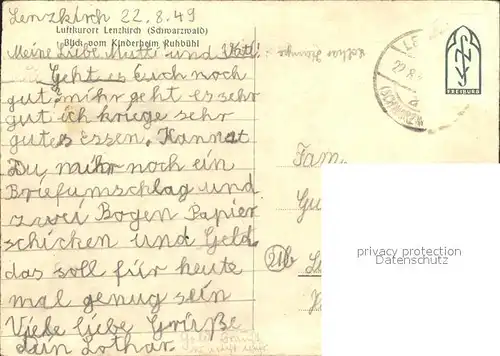 Lenzkirch 22.8.49
Luftkurort Lenzkirch (Schwarzwald)
Blick vom Kinderheim Ruhbühl
Meine Liebe Mutti und Vati!
Geht es Euch noch
gut, mihr geht es sehr
gut ich kriege sehr
gutes essen. Kannst
Du mihr noch ein
Briefumschlag und
zwei Bogen Papier
schicken und Geld
das soll für heute
mal genug sein
Viele liebe Grüße
Dein Lothar.
LE
22.8.
a
(SCHWARZW
FREIBURG
Fam.
Gu
privacy protection
Datenschutz